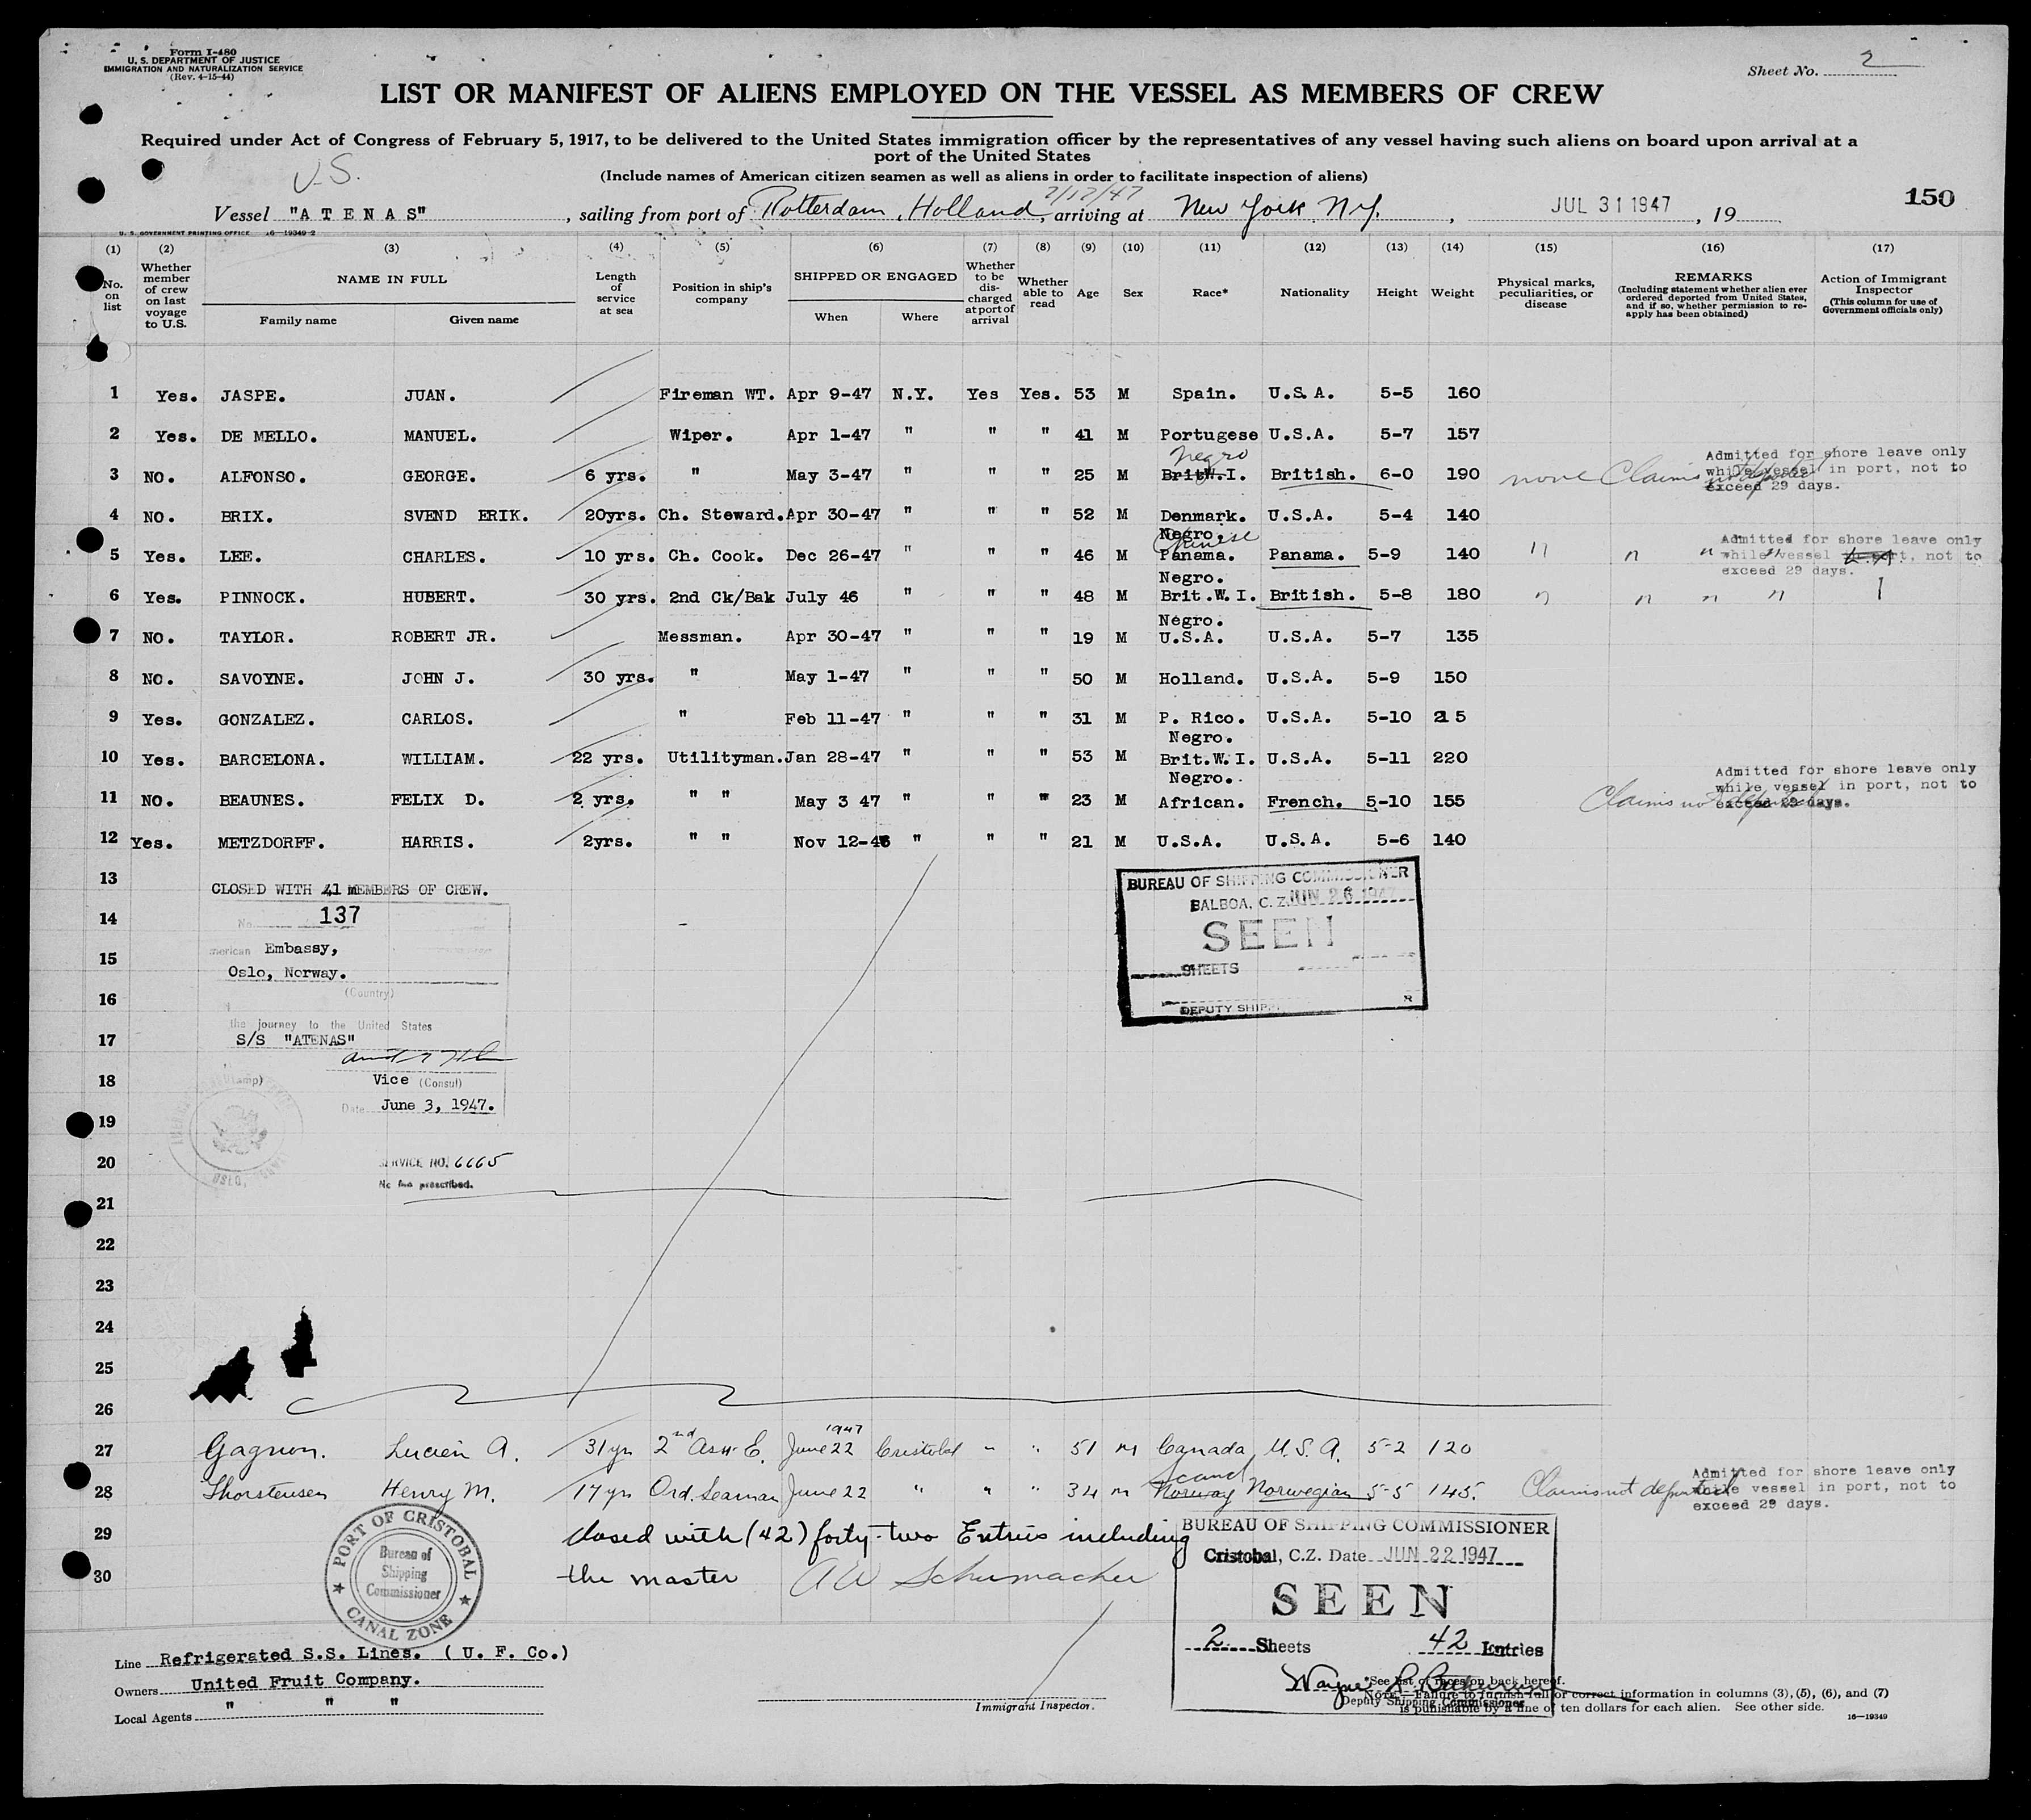 Form I-480
U. S. DEPARTMENT OF JUSTICE
IMMIGRATION AND NATURALIZATION SERVICE
(Rev. 4-15-44)
Sheet No. 2
LIST OR MANIFEST OF ALIENS EMPLOYED ON THE VESSEL AS MEMBERS OF CREW
Required under Act of Congress of February 5, 1917, to be delivered to the United States immigration officer by the representatives of any vessel having such aliens on board upon arrival at a
port of the United States
U.S.
(Include names of American citizen seamen as well as aliens in order to facilitate inspection of aliens)
Vessel "A T E N A S", sailing from port of Rotterdam, Holland, 7/17/47 arriving at New York, N.Y., JUL 31 1947, 19
150
U. S. GOVERNMENT PRINTING OFFICE 16-19349-2
(1) (2) (3) (4) (5) (6) (7) (8) (9) (10) (11) (12) (13) (14) (15) (16) (17)
No. on list
Whether member of crew on last voyage to U.S.
NAME IN FULL
Family name Given name
Length of service at sea
Position in ship's company
SHIPPED OR ENGAGED
When Where
Whether to be discharged at port of arrival
Whether able to read
Age
Sex
Race*
Nationality
Height
Weight
Physical marks, peculiarities, or disease
REMARKS
(Including statement whether alien ever ordered deported from United States, and if so, whether permission to re-apply has been obtained)
Action of Immigrant Inspector
(This column for use of Government officials only)
1 Yes. JASPE. JUAN. Fireman WT. Apr 9-47 N.Y. Yes Yes. 53 M Spain. U.S.A. 5-5 160
2 Yes. DE MELLO. MANUEL. Wiper. Apr 1-47 " " " 41 M Portugese U.S.A. 5-7 157
Negro
3 NO. ALFONSO. GEORGE. 6 yrs. " May 3-47 " " " 25 M Brit W.I. British. 6-0 190 none Claims not deported
Admitted for shore leave only
while vessel in port, not to
exceed 29 days.
4 NO. BRIX. SVEND ERIK. 20yrs. Ch. Steward. Apr 30-47 " " " 52 M Denmark. U.S.A. 5-4 140
Negro. Chinese
5 Yes. LEE. CHARLES. 10 yrs. Ch. Cook. Dec 26-47 " " " 46 M Panama. Panama. 5-9 140 " " " "
Admitted for shore leave only
while vessel in port, not to
exceed 29 days.
Negro.
6 Yes. PINNOCK. HUBERT. 30 yrs. 2nd Ck/Bak July 46 " " " 48 M Brit.W.I. British. 5-8 180 " " " "
Negro.
7 NO. TAYLOR. ROBERT JR. Messman. Apr 30-47 " " " 19 M U.S.A. U.S.A. 5-7 135
8 NO. SAVOYNE. JOHN J. 30 yrs. " May 1-47 " " " 50 M Holland. U.S.A. 5-9 150
9 Yes. GONZALEZ. CARLOS. " Feb 11-47 " " " 31 M P. Rico. U.S.A. 5-10 215
Negro.
10 Yes. BARCELONA. WILLIAM. 22 yrs. Utilityman. Jan 28-47 " " " 53 M Brit.W.I. U.S.A. 5-11 220
Negro.
11 NO. BEAUNES. FELIX D. 2 yrs. " " May 3 47 " " " 23 M African. French. 5-10 155 Claims not deported
Admitted for shore leave only
while vessel in port, not to
exceed 29 days.
12 Yes. METZDORFF. HARRIS. 2yrs. " " Nov 12-46 " " " 21 M U.S.A. U.S.A. 5-6 140
13
CLOSED WITH 41 MEMBERS OF CREW.
BUREAU OF SHIPPING COMMISSIONER
BALBOA, C. Z. JUN 26 1947
SEEN
SHEETS
DEPUTY SHIP
14
No. 137
15
American Embassy,
Oslo, Norway.
16
(Country)
17
the journey to the United States
S/S "ATENAS"
18
Vice (Consul)
Date June 3, 1947.
19
20
SERVICE NO. 6665
No fee prescribed.
21
22
23
24
25
26
27 Gagnon. Lucien A. 31yn 2nd Asst. E. June 22 1947 Cristobal " " 51 M Canada U.S.A. 5-2 120
Scand
28 Thorstensen Henry M. 17yn Ord. Seaman June 22 " " " 34 M Norway Norwegian 5-5 145. Claims not deported
Admitted for shore leave only
while vessel in port, not to
exceed 29 days.
29 Closed with (42) forty-two Entries including
30 the master AW Schumacher
PORT OF CRISTOBAL
Bureau of
Shipping
Commissioner
CANAL ZONE
BUREAU OF SHIPPING COMMISSIONER
Cristobal, C.Z. Date JUN 22 1947
SEEN
2 Sheets 42 Entries
Wayne
Deputy Shipping Commissioner
Line Refrigerated S.S. Lines. ( U. F. Co.)
Owners United Fruit Company.
Local Agents " " "
Immigrant Inspector.
*See list of races on back hereof.
Failure to furnish full or correct information in columns (3), (5), (6), and (7)
is punishable by a fine of ten dollars for each alien. See other side.
16—19349